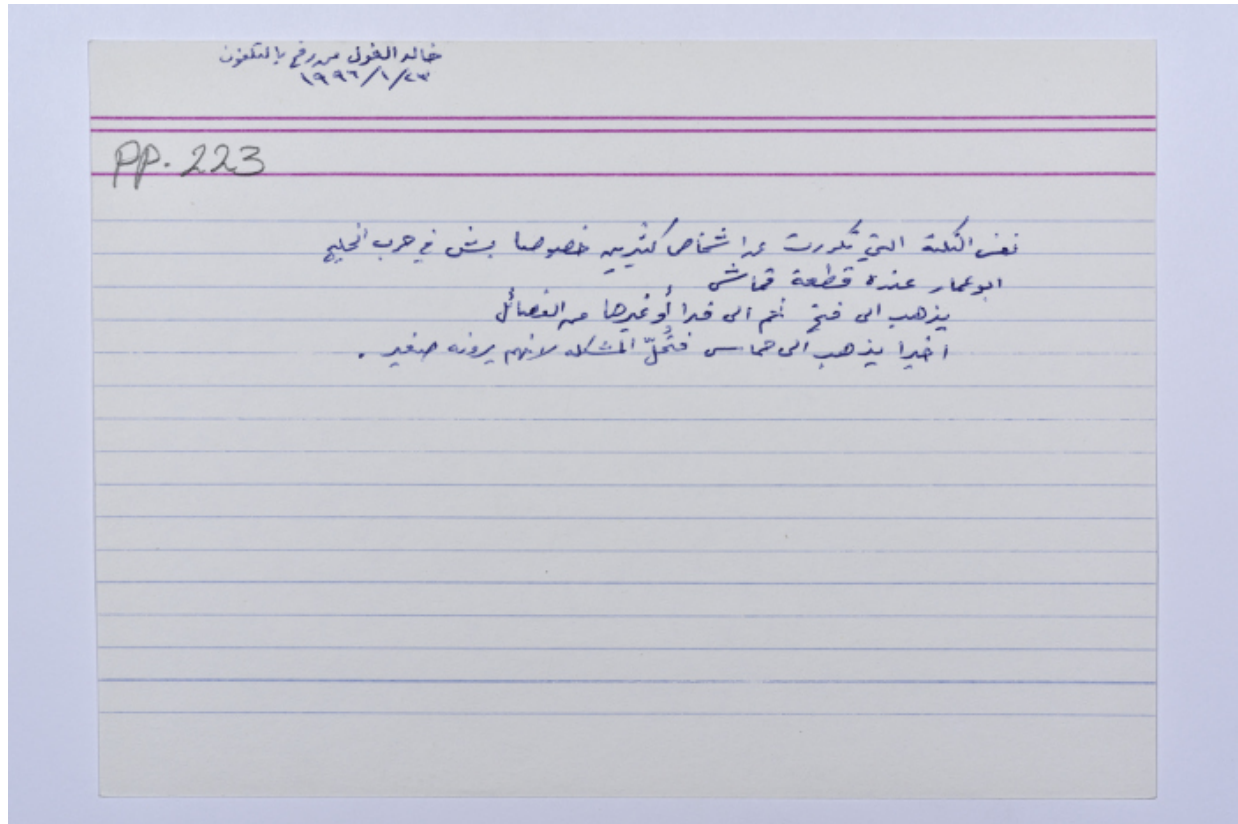 خالد الغول من رفح بالتلفون
٢٣/١/١٩٩٦
PP. 223
نفس النكتة التي تكررت عن اشخاص كثيرين خصوصا بوش في حرب الخليج
ابو عمار عنده قطعة قماش
يذهب الى فتح ثم الى فدا أو غيرها من الفصائل
اخيرا يذهب الى حماس فتُحلّ المشكله لانهم يرونه صغير .